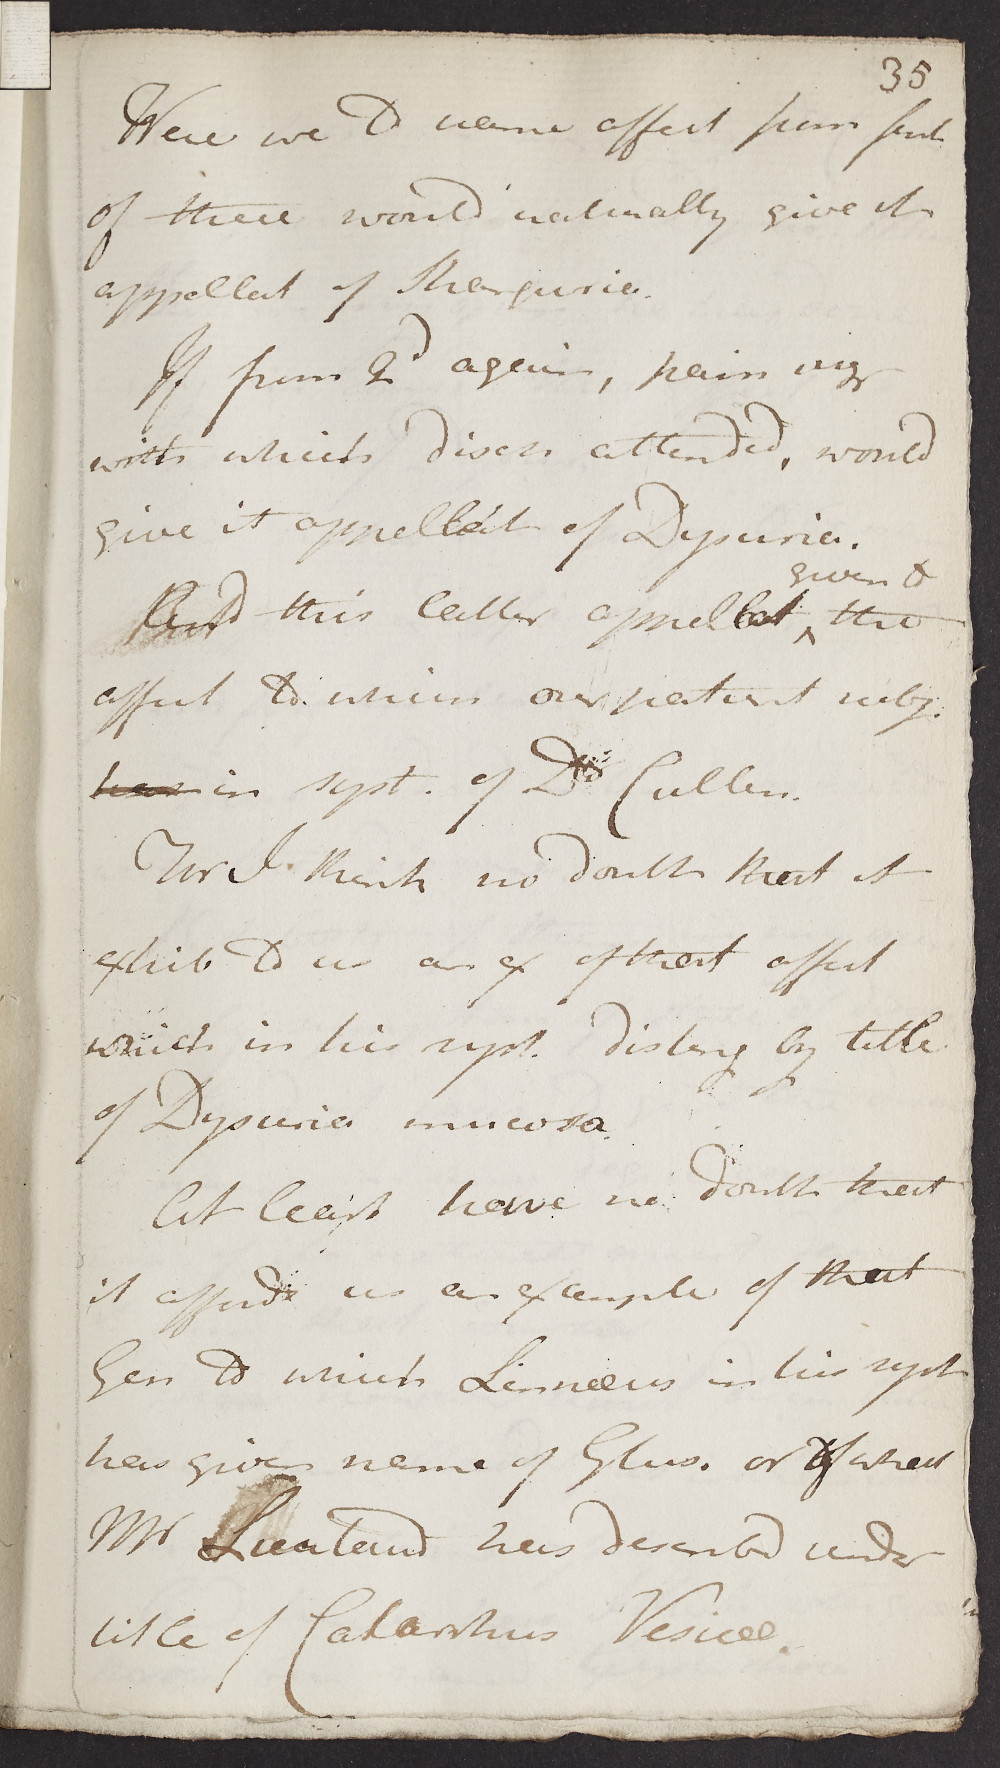 35
Were we to name affect from first
of these would naturally give it
appellat of Stranguria.
If from 2d again, pain urg
with which diseas attended, would
give it appellat of Dysuria.
given to
And this latter appellat ^ the
affect to which our patient subj.
has in syst. of Dr Cullen.
For I think no doubt that it
exhib to us an ex of that affect
which in his syst. disting by title
of Dysuria mucosa.
At least have no doubt that
it affords us an example of that
Gen to which Linnæus in his syst
has given name of Glus. or of what
Mr Lieutaud has described under
title of Catarrhus Vesicæ.